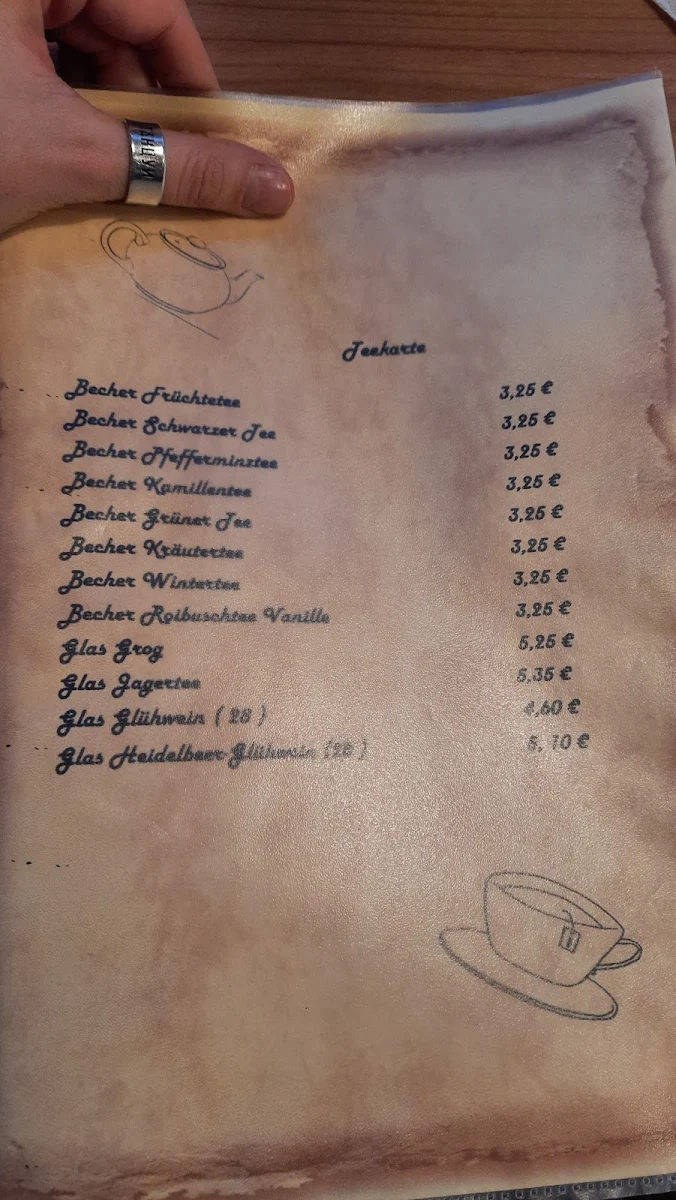 ТАНЦУЙ
Teekarte
Becher Früchtetee 3,25 €
Becher Schwarzer Tee 3,25 €
Becher Pfefferminztee 3,25 €
Becher Kamillentee 3,25 €
Becher Grüner Tee 3,25 €
Becher Kräutertee 3,25 €
Becher Wintertee 3,25 €
Becher Roibuschtee Vanille 3,25 €
Glas Grog 5,25 €
Glas Jagertee 5,35 €
Glas Glühwein ( 28 ) 4,60 €
Glas Heidelbeer-Glühwein (28 ) 5, 10 €